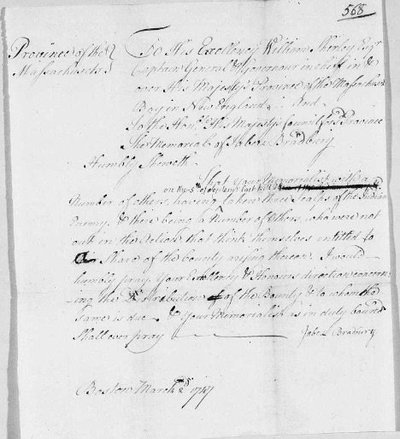 568
Province of the
Massachusetts
To His Excellency William Shirley Esqr
Captain General & Governour in chief in &
over His Majesty's Province of the Massachusets
Bay in New England. And
To the Honble His Majestys Council of sd Province
The Memorial of Jabez Bradbury
Humbly Sheweth
That your Memorialist with a
on the 5th of
Number of others, having taken three Scalps of the Indian
Enemy, & there being a Number of others, who were not
out in the that think themselves entitled to
a Share of the bounty arising thereon, I would
humbly pray Your Excellency & Honours direction concern
ing the Distribution of the Bounty & to whom the
same is due & Your Memorialist as in duty bound
Shall ever pray
Jabez Bradbury
Boston March 1747